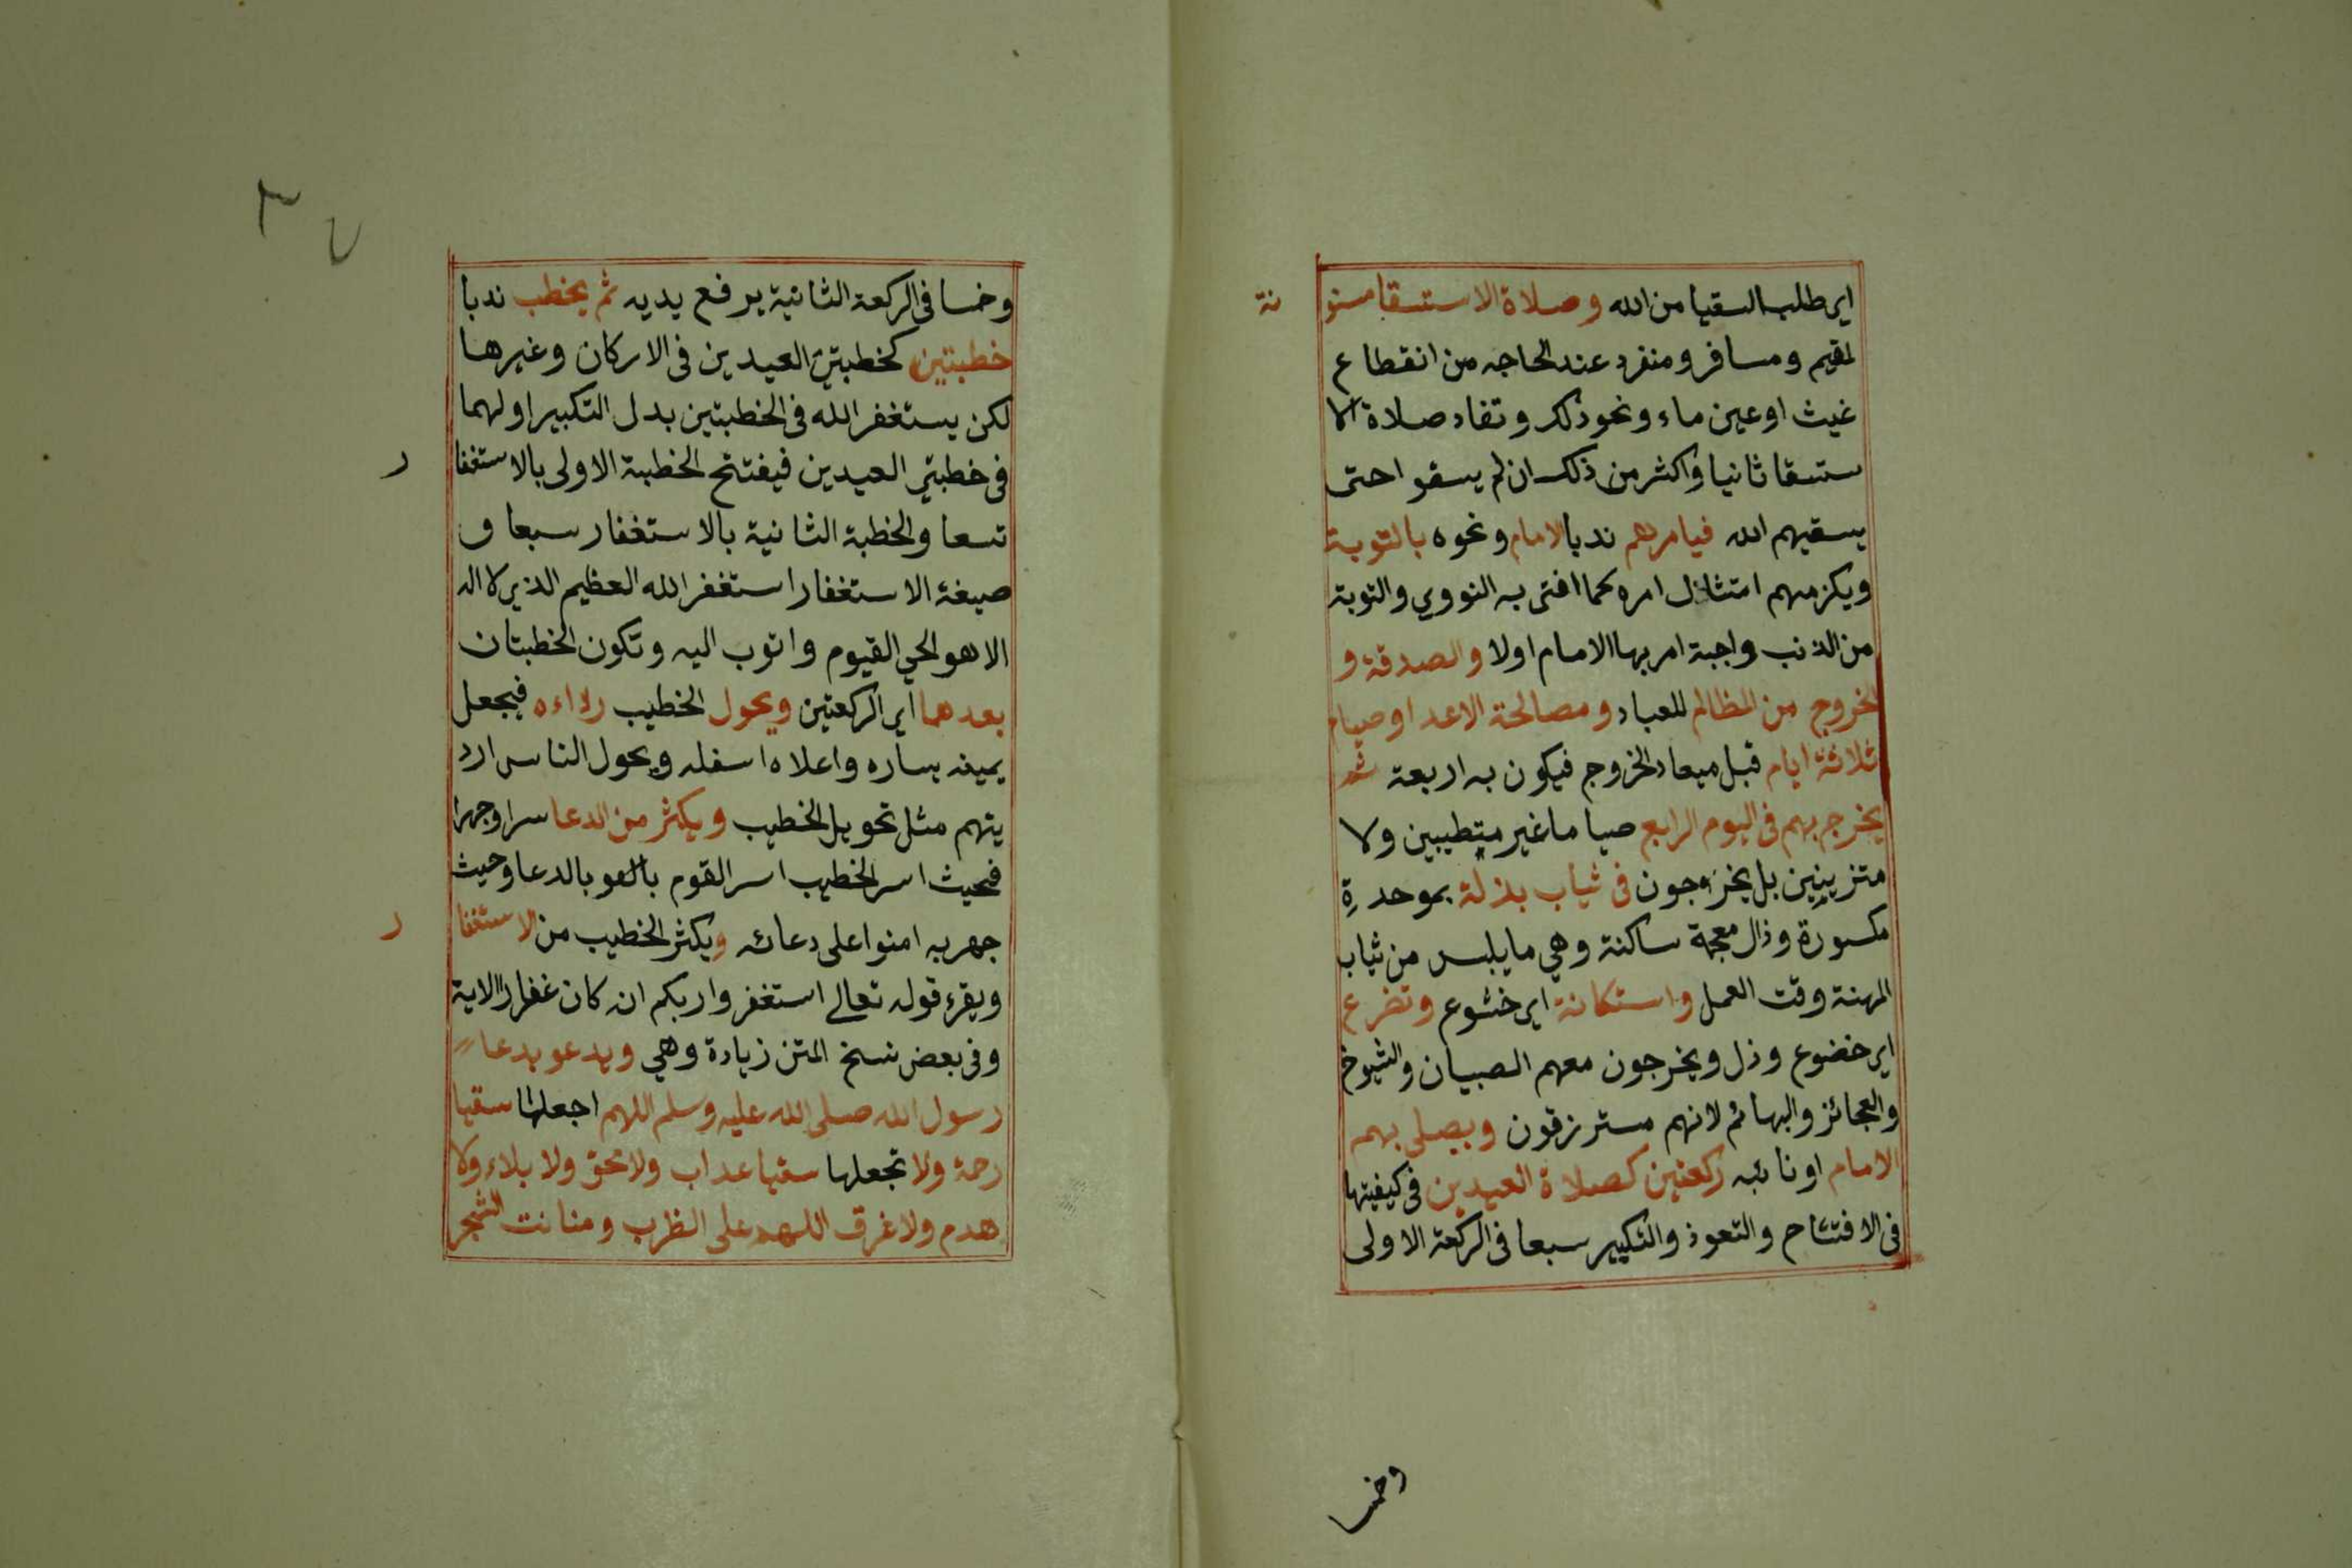 اي طلب السقيا من الله وصلاة الاستسقا مسنو نة
لمقيم ومسافر ومنفرد عند الحاجه من انقطاع
غيث او عين ماء ونحو ذلك وتعاد صلاة الا
ستسقا ثانيا واكثر من ذلك ان لم يسقوا حتى
يسقيهم الله فيامرهم ندبا الامام ونحوه بالتوبة
ويلزمهم امتثال امره كما افتى به النووي والتوبة
من الذنب واجبة امر بها الامام اولا والصدقة و
الخروج من المظالم للعباد ومصالحة الاعدا وصيام
ثلاثة ايام قبل ميعاد الخروج فيكون به اربعة ثم
يخرج بهم في اليوم الرابع صياما غير متطيبين ولا
متزينين بل يخرجون في ثياب بذلة بموحدةِ
مكسورة وذال معجمة ساكنة وهي ما يلبس من ثياب
المهنة وقت العمل واستكانة اي خشوع وتضرع
اي خضوع وذل ويخرجون معهم الصبيان والشيوخ
والعجائز والبهائم لانهم مسترزقون ويصلي بهم
الامام او نائبه ركعتين كصلاة العيدين في كيفيتها
في الافتتاح والتعوذ والتكبير سبعا في الركعة الاولى
وخمسا
٣٧
وخمسا في الركعة الثانية يرفع يديه ثم يخطب ندبا
خطبتين كخطبتي العيدين في الاركان وغيرها
لكن يستغفر الله في الخطبتين بدل التكبير اولهما
في خطبتي العيدين فيفتتح الخطبة الاولى بالاستغفا ر
تسعا والخطبة الثانية بالاستغفار سبعا و
صيغة الاستغفار استغفر الله العظيم الذي لا اله
الا هو الحي القيوم واتوب اليه وتكون الخطبتان
بعدهما اي الركعتين ويحول الخطيب رداءه فيجعل
يمينه يساره واعلاه اسفله ويحول الناس ارد
يتهم مثل تحويل الخطيب ويكثر من الدعا سرا وجهرا
فحيث اسر الخطيب اسر القوم بالدعا وحيث
جهر به امنوا على دعائه ويكثر الخطيب من الاستغفا ر
ويقرء قوله تعالى استغفروا ربكم انه كان غفارا الاية
وفي بعض نسخ المتن زيادة وهي ويدعو بدعاء
رسول الله صلى الله عليه وسلم اللهم اجعلها سقيا
رحمة ولا تجعلها سقيا عذاب ولا محق ولا بلاء ولا
هدم ولا غرق اللهم على الظرب ومنانت الشجر